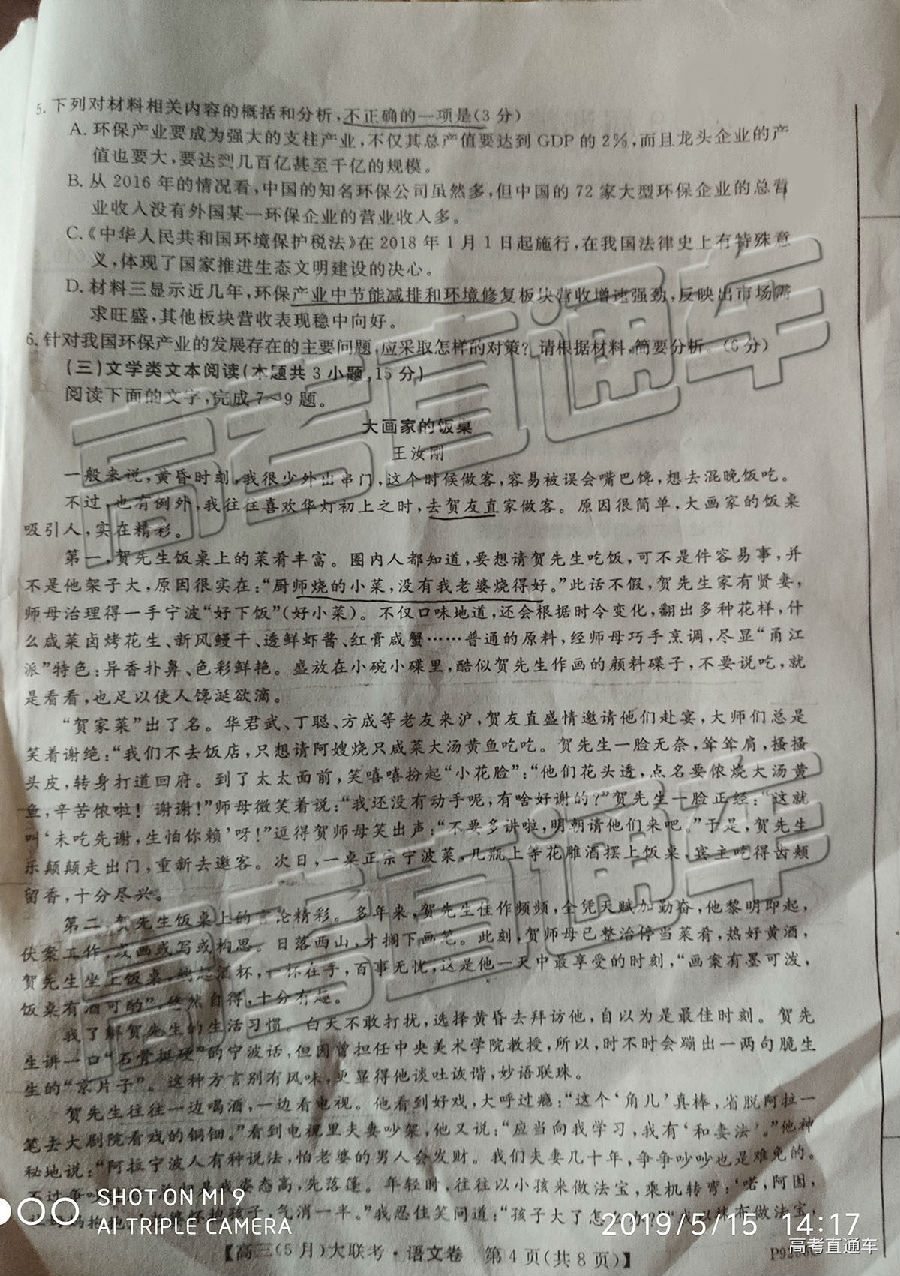 5. 下列对材料相关内容的概括和分析,不正确的一项是(3分)
A. 环保产业要成为强大的支柱产业,不仅其总产值要达到GDP的2%,而且龙头企业的产
值也要大,要达到几百亿甚至千亿的规模。
B. 从2016年的情况看,中国的知名环保公司虽然多,但中国的72家大型环保企业的总营
业收入没有外国某一环保企业的营业收入多。
C.《中华人民共和国环境保护税法》在2018年1月1日起施行,在我国法律史上有特殊意
义,体现了国家推进生态文明建设的决心。
D. 材料三显示近几年,环保产业中节能减排和环境修复板块营收增速强劲,反映出市场需
求旺盛,其他板块营收表现稳中向好。
6. 针对我国环保产业的发展存在的主要问题,应采取怎样的对策?请根据材料,简要分析。(6分)
(三)文学类文本阅读(本题共3小题,15分)
阅读下面的文字,完成7~9题。
大画家的饭桌
王汝刚
一般来说,黄昏时刻,我很少外出串门,这个时候做客,容易被误会嘴巴馋,想去混晚饭吃。
不过,也有例外,我往往喜欢华灯初上之时,去贺友直家做客。原因很简单,大画家的饭桌
吸引人,实在精彩。
第一,贺先生饭桌上的菜肴丰富。圈内人都知道,要想请贺先生吃饭,可不是件容易事,并
不是他架子大,原因很实在:“厨师烧的小菜,没有我老婆烧得好。”此话不假,贺先生家有贤妻,
师母治理得一手宁波“好下饭”(好小菜)。不仅口味地道,还会根据时令变化,翻出多种花样,什
么咸菜卤烤花生、新风鳗干、透鲜虾酱、红膏咸蟹……普通的原料,经师母巧手烹调,尽显“甬江
派”特色:异香扑鼻、色彩鲜艳。盛放在小碗小碟里,酷似贺先生作画的颜料碟子,不要说吃,就
是看看,也足以使人馋涎欲滴。
“贺家菜”出了名。华君武、丁聪、方成等老友来沪,贺友直盛情邀请他们赴宴,大师们总是
笑着谢绝:“我们不去饭店,只想请阿嫂烧只咸菜大汤黄鱼吃吃。贺先生一脸无奈,耸耸肩,搔搔
头皮,转身打道回府。到了太太面前,笑嘻嘻扮起“小花脸”:“他们花头透,点名要侬烧大汤黄
鱼,辛苦侬啦!谢谢!”师母微笑着说:“我还没有动手呢,有啥好谢的?”贺先生一脸正经:“这就
叫‘未吃先谢,生怕你赖’呀!”逗得贺师母笑出声:“不要多讲啦,明朝请他们来吧。”于是,贺先生
乐颠颠走出门,重新去邀客。次日,一桌正宗宁波菜,几瓶上等花雕酒摆上饭桌,宾主吃得齿颊
留香,十分尽兴。
第二,贺先生饭桌上的言论精彩。多年来,贺先生佳作频频,全凭天赋加勤奋,他黎明即起,
伏案工作,或画或写或构思。日落西山,才搁下画笔。此刻,贺师母已整治停当菜肴,热好黄酒,
贺先生坐上饭桌,酒杯,一杯在手,百事无忧,这是他一天中最享受的时刻,“画案有墨可泼,
饭桌有酒可酌”,悠然自得,十分有趣。
我了解贺先生的生活习惯。白天不敢打扰,选择黄昏去拜访他,自以为是最佳时刻。贺先
生讲一口“石骨挺硬”的宁波话,但因曾担任中央美术学院教授,所以,时不时会蹦出一两句脆生
生的“京片子”。这种方言别有风味,更显得他谈吐诙谐,妙语联珠。
贺先生往往一边喝酒,一边看电视。他看到好戏,大呼过瘾:“这个‘角儿’真棒,省脱阿拉一
笔去大剧院看戏的铜钿。”看到电视里夫妻吵架,他又说:“应当向我学习,我有‘和妻法’。”他神
秘地说:“阿拉宁波人有种说法,怕老婆的男人会发财。我们夫妻几十年,争争吵吵也是难免的。
不过争吵是我姿态高,先落篷。年轻时,往往以小孩来做法宝,乘机转弯:‘喏,阿囡,
孩子,气消一半。”我忍住笑问道:“孩子大了怎么做法宝,
【高三(5月)大联考·语文卷 第4页(共8页)】
高考直通车
高考直通车
SHOT ON MI 9
AI TRIPLE CAMERA
2019/5/15 14:17
高考直通车